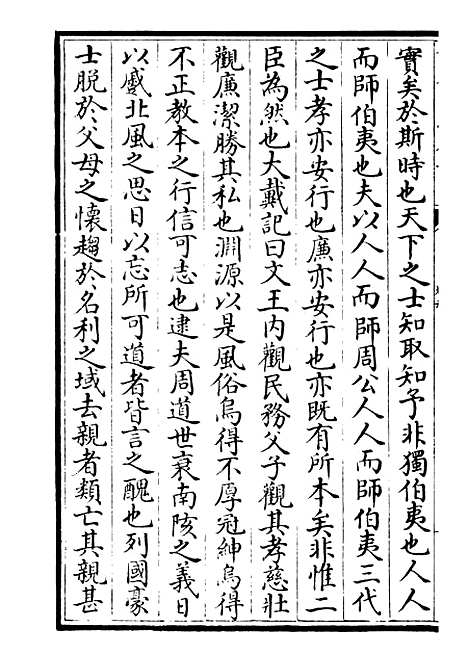 實矣於斯時也天下之士知取知予非獨伯夷也人人
而師伯夷也夫以人人而師周公人人而師伯夷三代
之士孝亦安行也廉亦安行也亦既有所本矣非惟二
臣為然也大戴記曰文王內觀民務父子觀其孝慈壯
觀廉潔勝其私也淵源以是風俗烏得不厚冠紳烏得
不正教本之行信可志也逮夫周道世衰南陔之義日
以虧北風之思日以忘所可道者皆言之醜也列國豪
士脱於父母之懷趨於名利之域去親者類亡其親甚